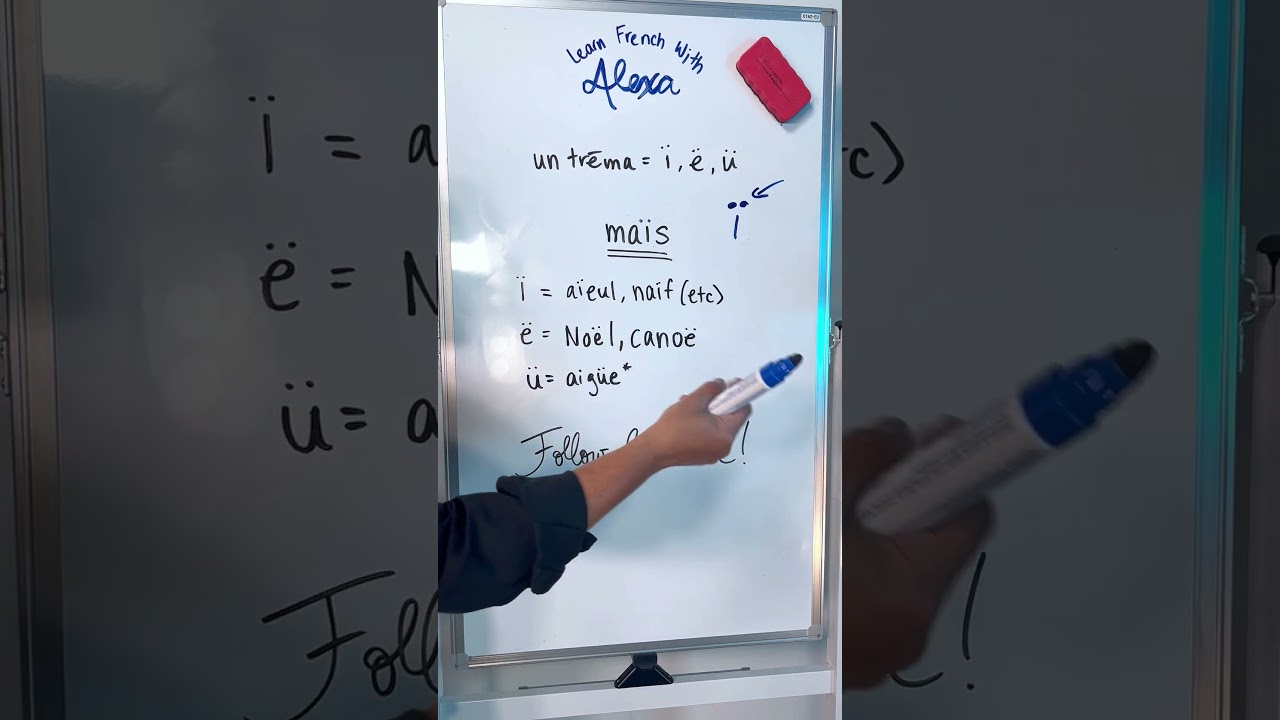 Learn French With
Alexa
un tréma = ï, ë, ü
ï
maïs
ï = aïeul, naïf (etc)
ë = Noël, canoë
ü = aigüe*
Follow
!